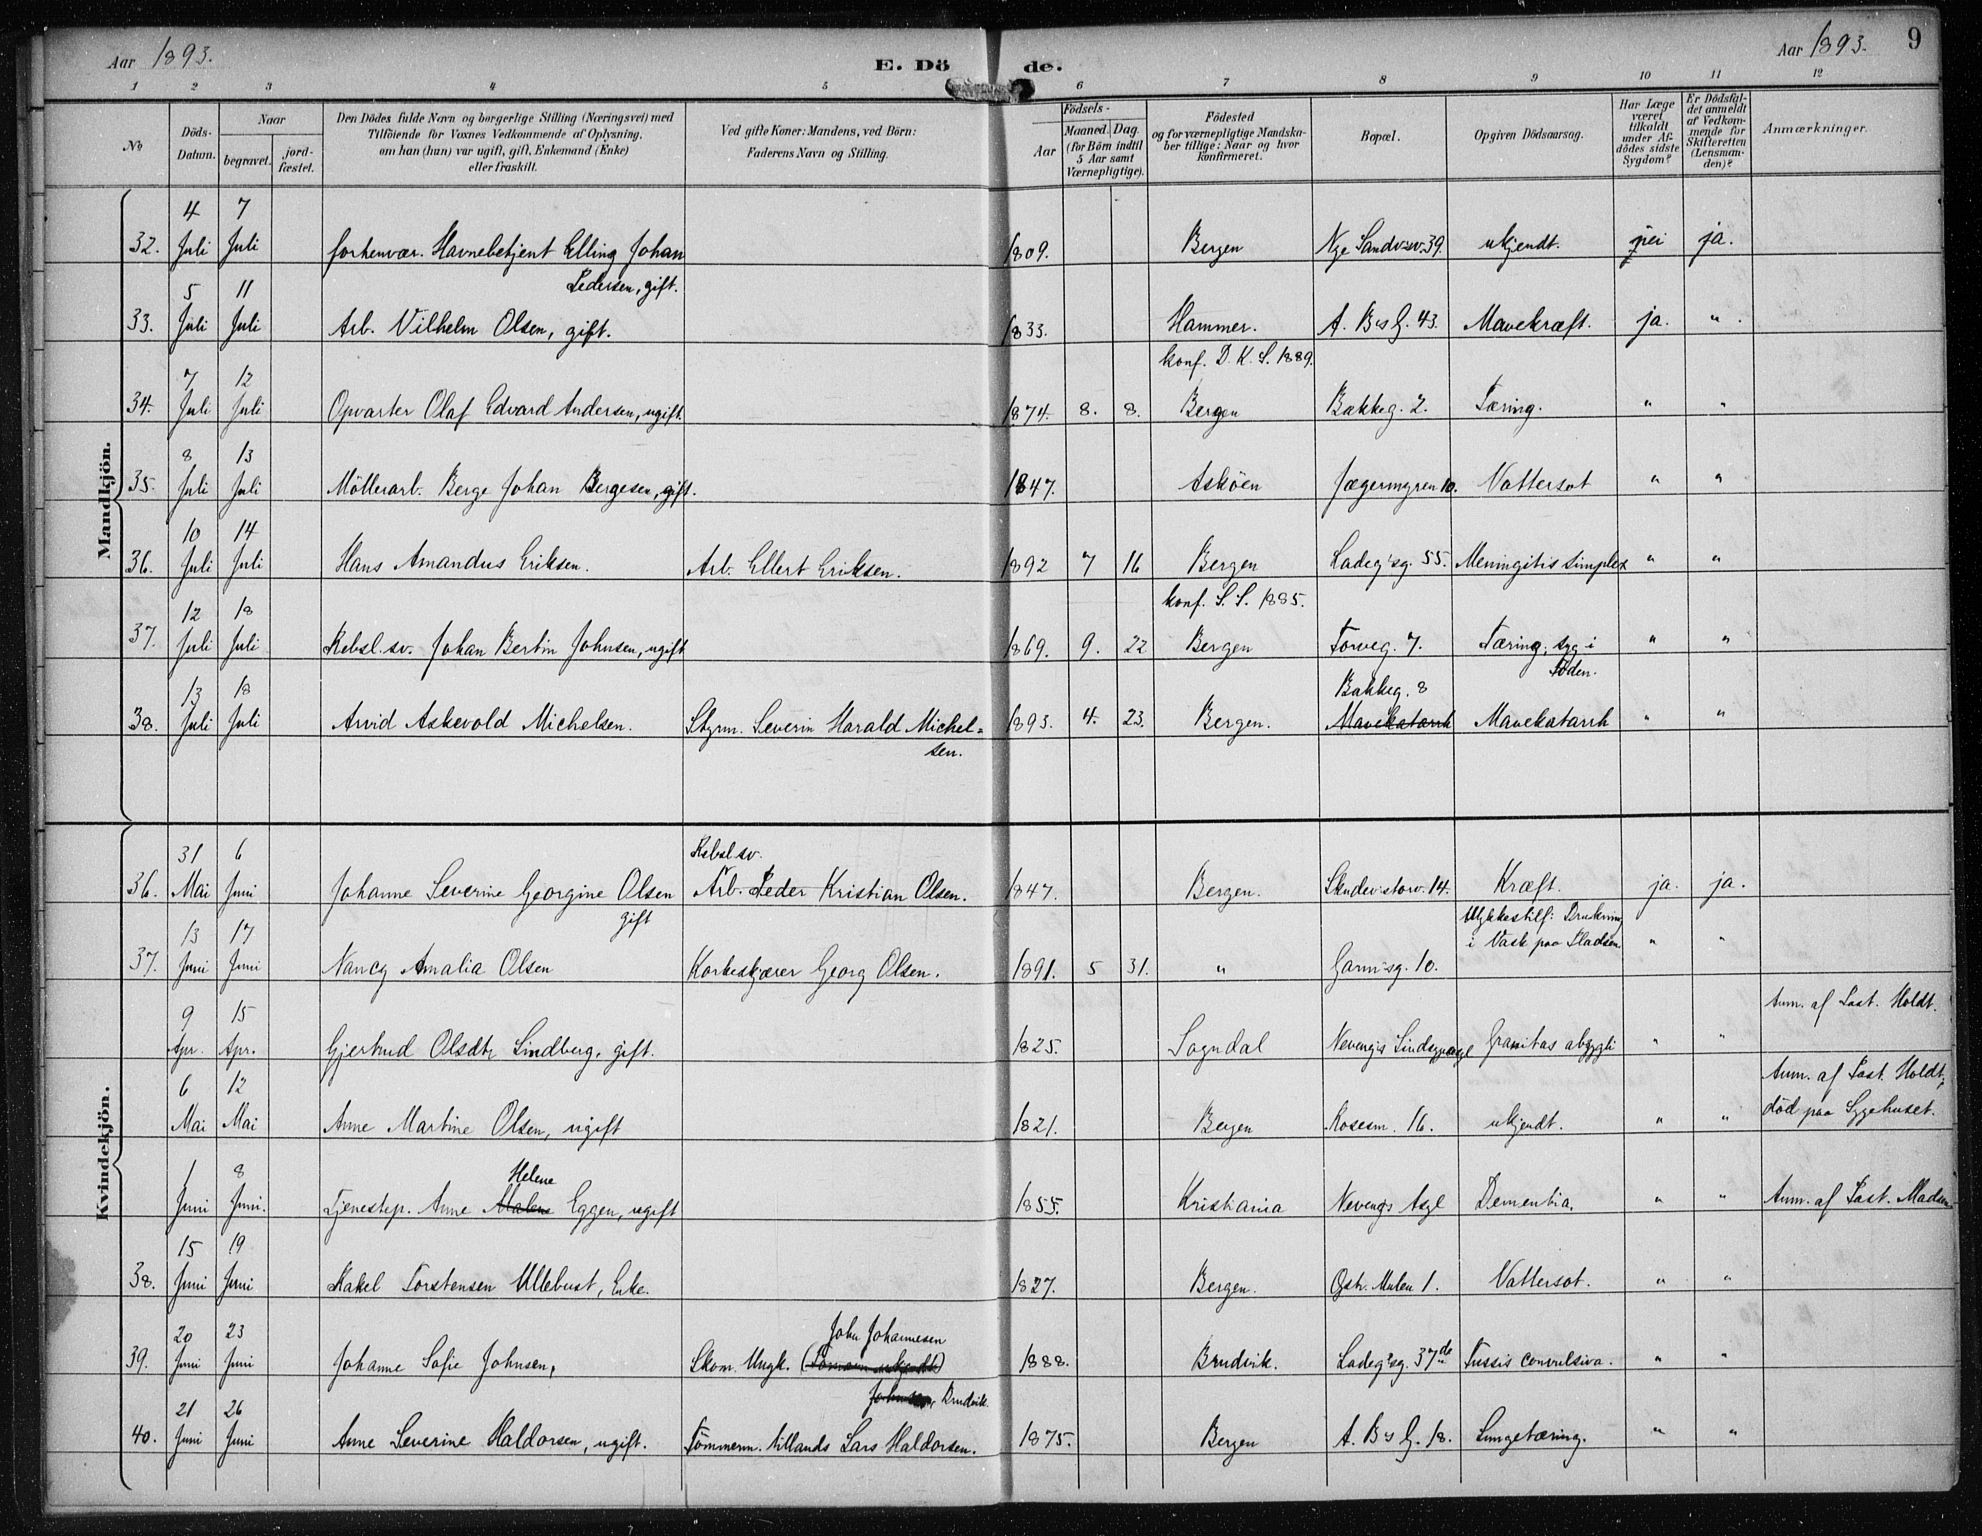 Aar 1893.
E. Döde.
Aar 1893.
9
1 2 3 4 5 6 7 8 9 10 11 12
No
Döds-Datum.
Naar
begravet.
jord-fæstet.
Den Dödes fulde Navn og borgerlige Stilling (Næringsvei) med
Tilföiende for Voxnes Vedkommende af Oplysning,
om han (hun) var ugift, gift, Enkemand (Enke)
eller fraskilt.
Ved gifte Koner: Mandens, ved Börn:
Faderens Navn og Stilling.
Födsels-
Aar
Maaned. Dag.
(for Börn indtil
5 Aar samt
Værnepligtige).
Födested
og for værnepligtige Mandska-
ber tillige: Naar og hvor
konfirmeret.
Bopæl.
Opgiven Dödsaarsag.
Har Læge
været
tilkaldt
under Af-
dödes sidste
Sygdom?
Er Dödsfal-
det anmeldt
af Vedkom-
mende for
Skifteretten
(Lensman-
den)?
Anmærkninger.
Mandkjön.
32. 4 Juli 7 Juli forhenvær. Havnebetjent Elling Johan Pedersen, gift. 1809. Bergen Nye Sandvsv. 39. ukjendt. nei ja.
33. 5 Juli 11 Juli Arb. Vilhelm Olsen, gift. 1833. Hammer. A. Bs G. 43. Mavekræft. ja. "
34. 7 Juli 12 Juli Opvarter Olaf Edvard Andersen, ugift 1874. 8. 8. konf. D. K. S. 1889. Bergen Bakkeg. 2. Tæring. " "
35. 8 Juli 13 Juli Möllerarb. Berge Johan Bergesen, gift. 1847. Asköen Jægermyren 10. Vattersot " "
36. 10 Juli 14 Juli Hans Amandus Eriksen. Arb. Ellert Eriksen. 1892 7 16 Bergen Ladeg'sg. 55. Meningitis simplex " "
37. 12 Juli 18 Juli Rebsl. sv. Johan Bertin Johnsen, ugift 1869. 9. 22 konf. S. S. 1885. Bergen Torveg. 7. Tæring, syg i Foden. " "
38. 13 Juli 18 Juli Arvid Askevold Michelsen. Styrm. Severin Harald Michelsen. 1893. 4. 23. Bergen. Bakkeg. 8 Mavekatarrh Mavekatarrh " "
Kvindekjön.
36. 31 Mai 6 Juni Johanne Severine Georgine Olsen gift Rebsl. sv. Arb. Peder Kristian Olsen. 1847. Bergen. Skudevstorv. 14. Kræft. ja. ja.
37. 13 Juni 17 Juni Nancy Amalia Olsen Korkeskjærer Georg Olsen. 1891. 5 31. " Garm'sg. 10. Ulykkestilf: Drukning i Vask paa Pladsen " "
9 Apr. 15 Apr. Gjertrud Olsdtr Lindberg, gift. 1825. Sogndal Nevengs " " Anm. af Past. Holdt.
6 Mai 12 Mai Anne Martine Olsen, ugift 1821. Bergen Rosesm. 16. ukjendt. " " Anm. af Past. Holdt, död paa Sygehuset.
1 Juni 8 Juni. Tjenestep. Anne Malene Helene Eggen, ugift 1855. Kristiania Nevengs Asyl Dementia. " " Anm. af Past. Madsen
38. 15 Juni 19 Juni Rakel Torstensen Ullebust, Enke. 1827. Bergen. Östr. Mulen 1. Vattersot. " "
39. 20 Juni 23 Juni Johanne Sofie Johnsen, Skom. Ungk. John Johannesen, Bruvik 1888. Bruvik. Ladeg'sg. 37de Tussis convulsiva. " "
40. 21 Juni 26 Juni Anne Severine Haldorsen, ugift. Tömmerm. tillands Lars Haldorsen. 1875. Bergen A. Bs G. 18. Lungetæring. " "